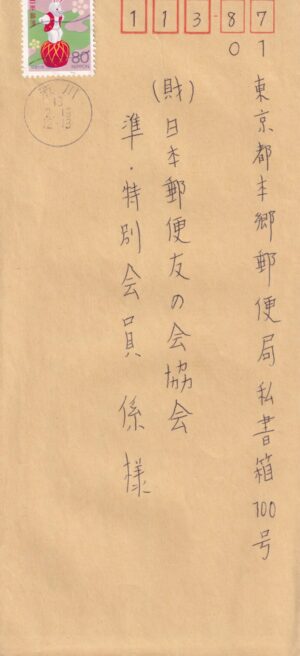 113-87
01
東京都本郷郵便局私書箱100号
(財)日本郵便友の会協会
準・特別会員係様
80
NIPPON